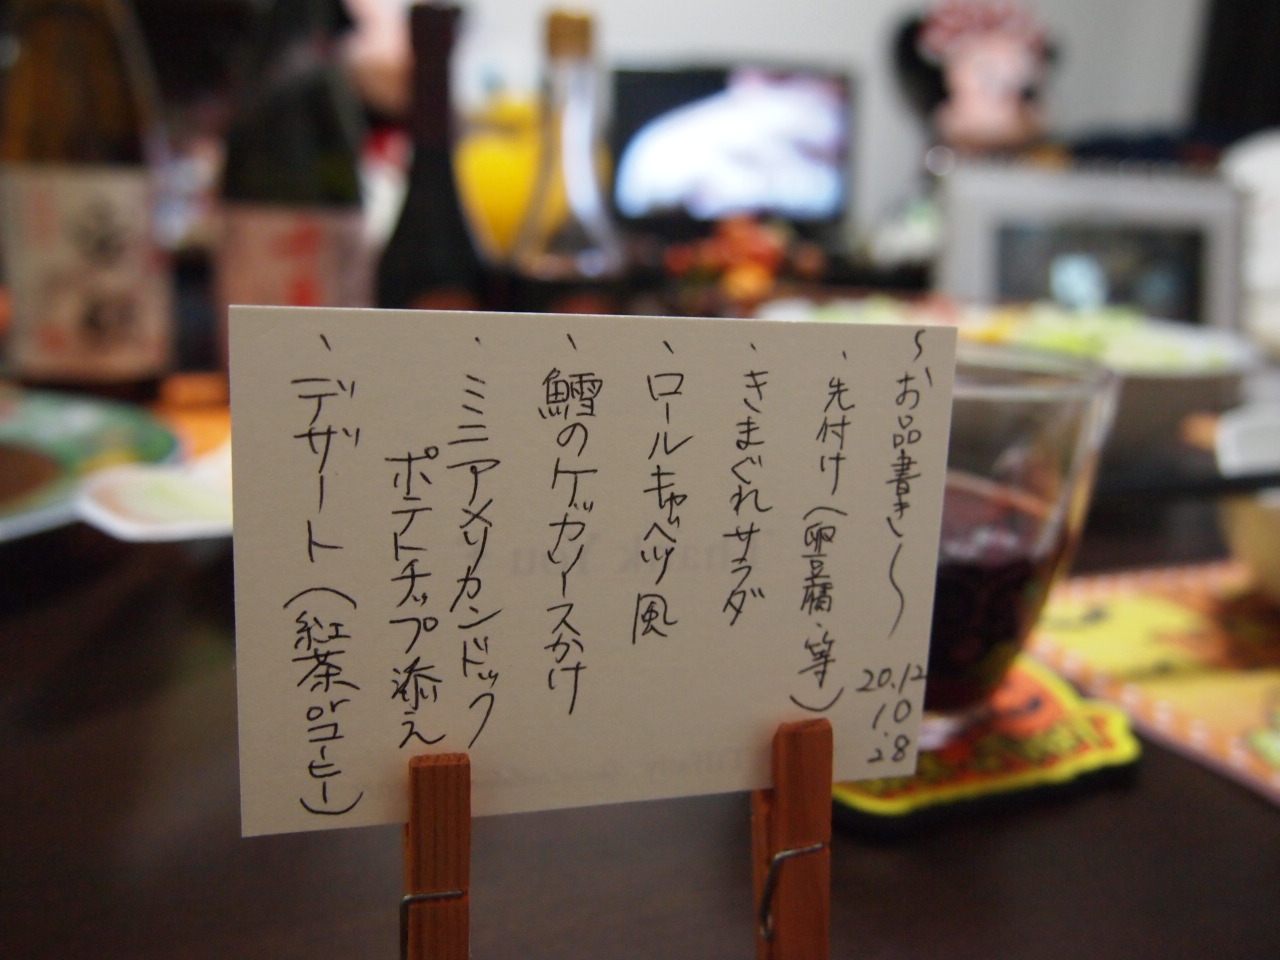 ～お品書き～
20.12
10.28
、先付け（卵豆腐、等）
、きまぐれサラダ
、ロールキャベツ風
、鱈のケッカソースかけ
、ミニアメリカンドック
ポテトチップ添え
、デザート（紅茶orコーヒー）